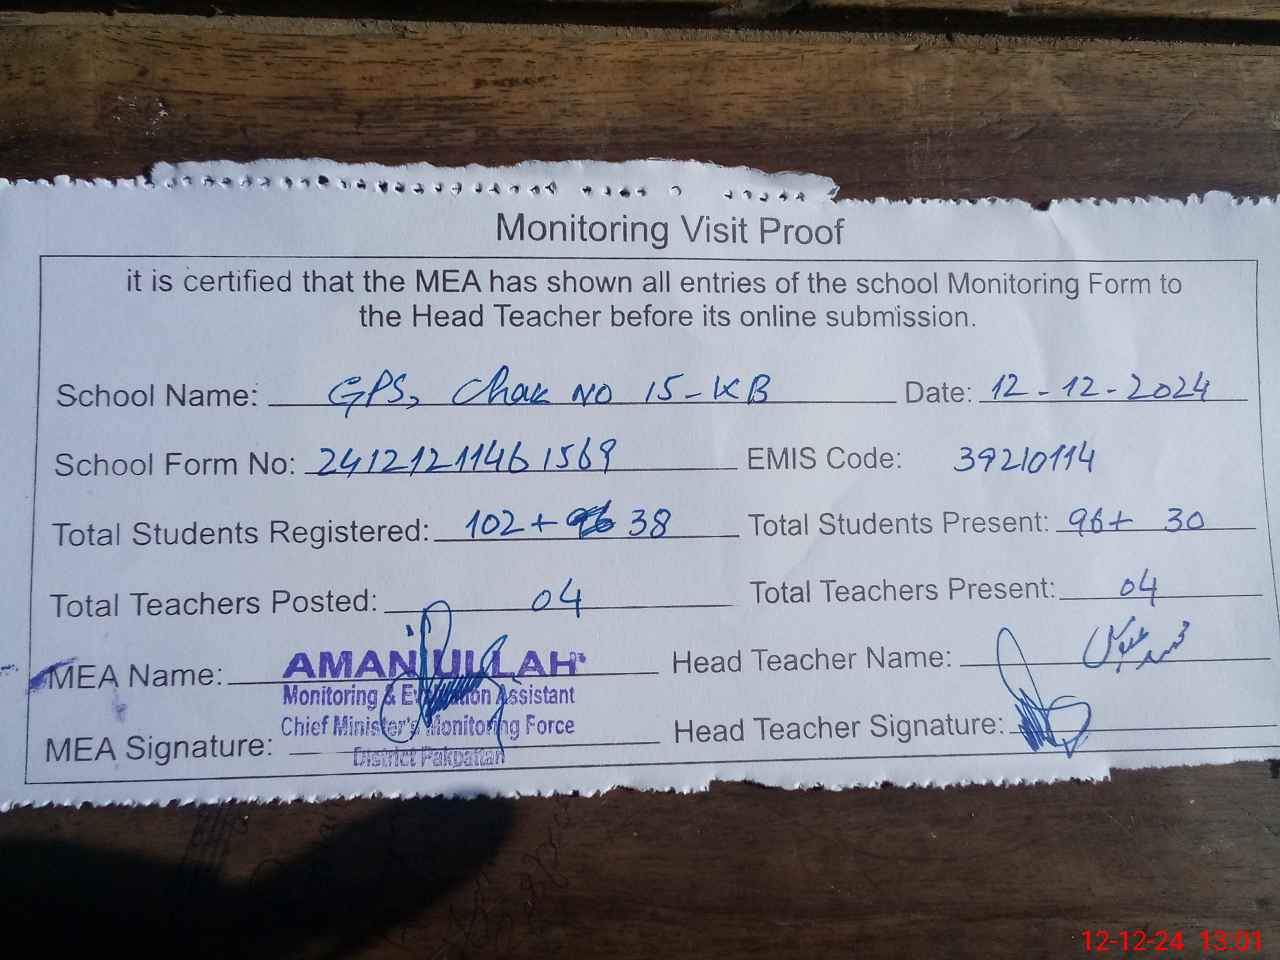 Monitoring Visit Proof
it is certified that the MEA has shown all entries of the school Monitoring Form to
the Head Teacher before its online submission.
School Name: GPS, Chak No 15-KB Date: 12-12-2024
School Form No: 24121211461569 EMIS Code: 39210114
Total Students Registered: 102+ 38 Total Students Present: 96+ 30
Total Teachers Posted: 04 Total Teachers Present: 04
MEA Name: AMAN ULLAH Head Teacher Name:
Monitoring & Evaluation Assistant
Chief Minister's Monitoring Force
MEA Signature: Head Teacher Signature:
District Pakpattan
12-12-24 13:01